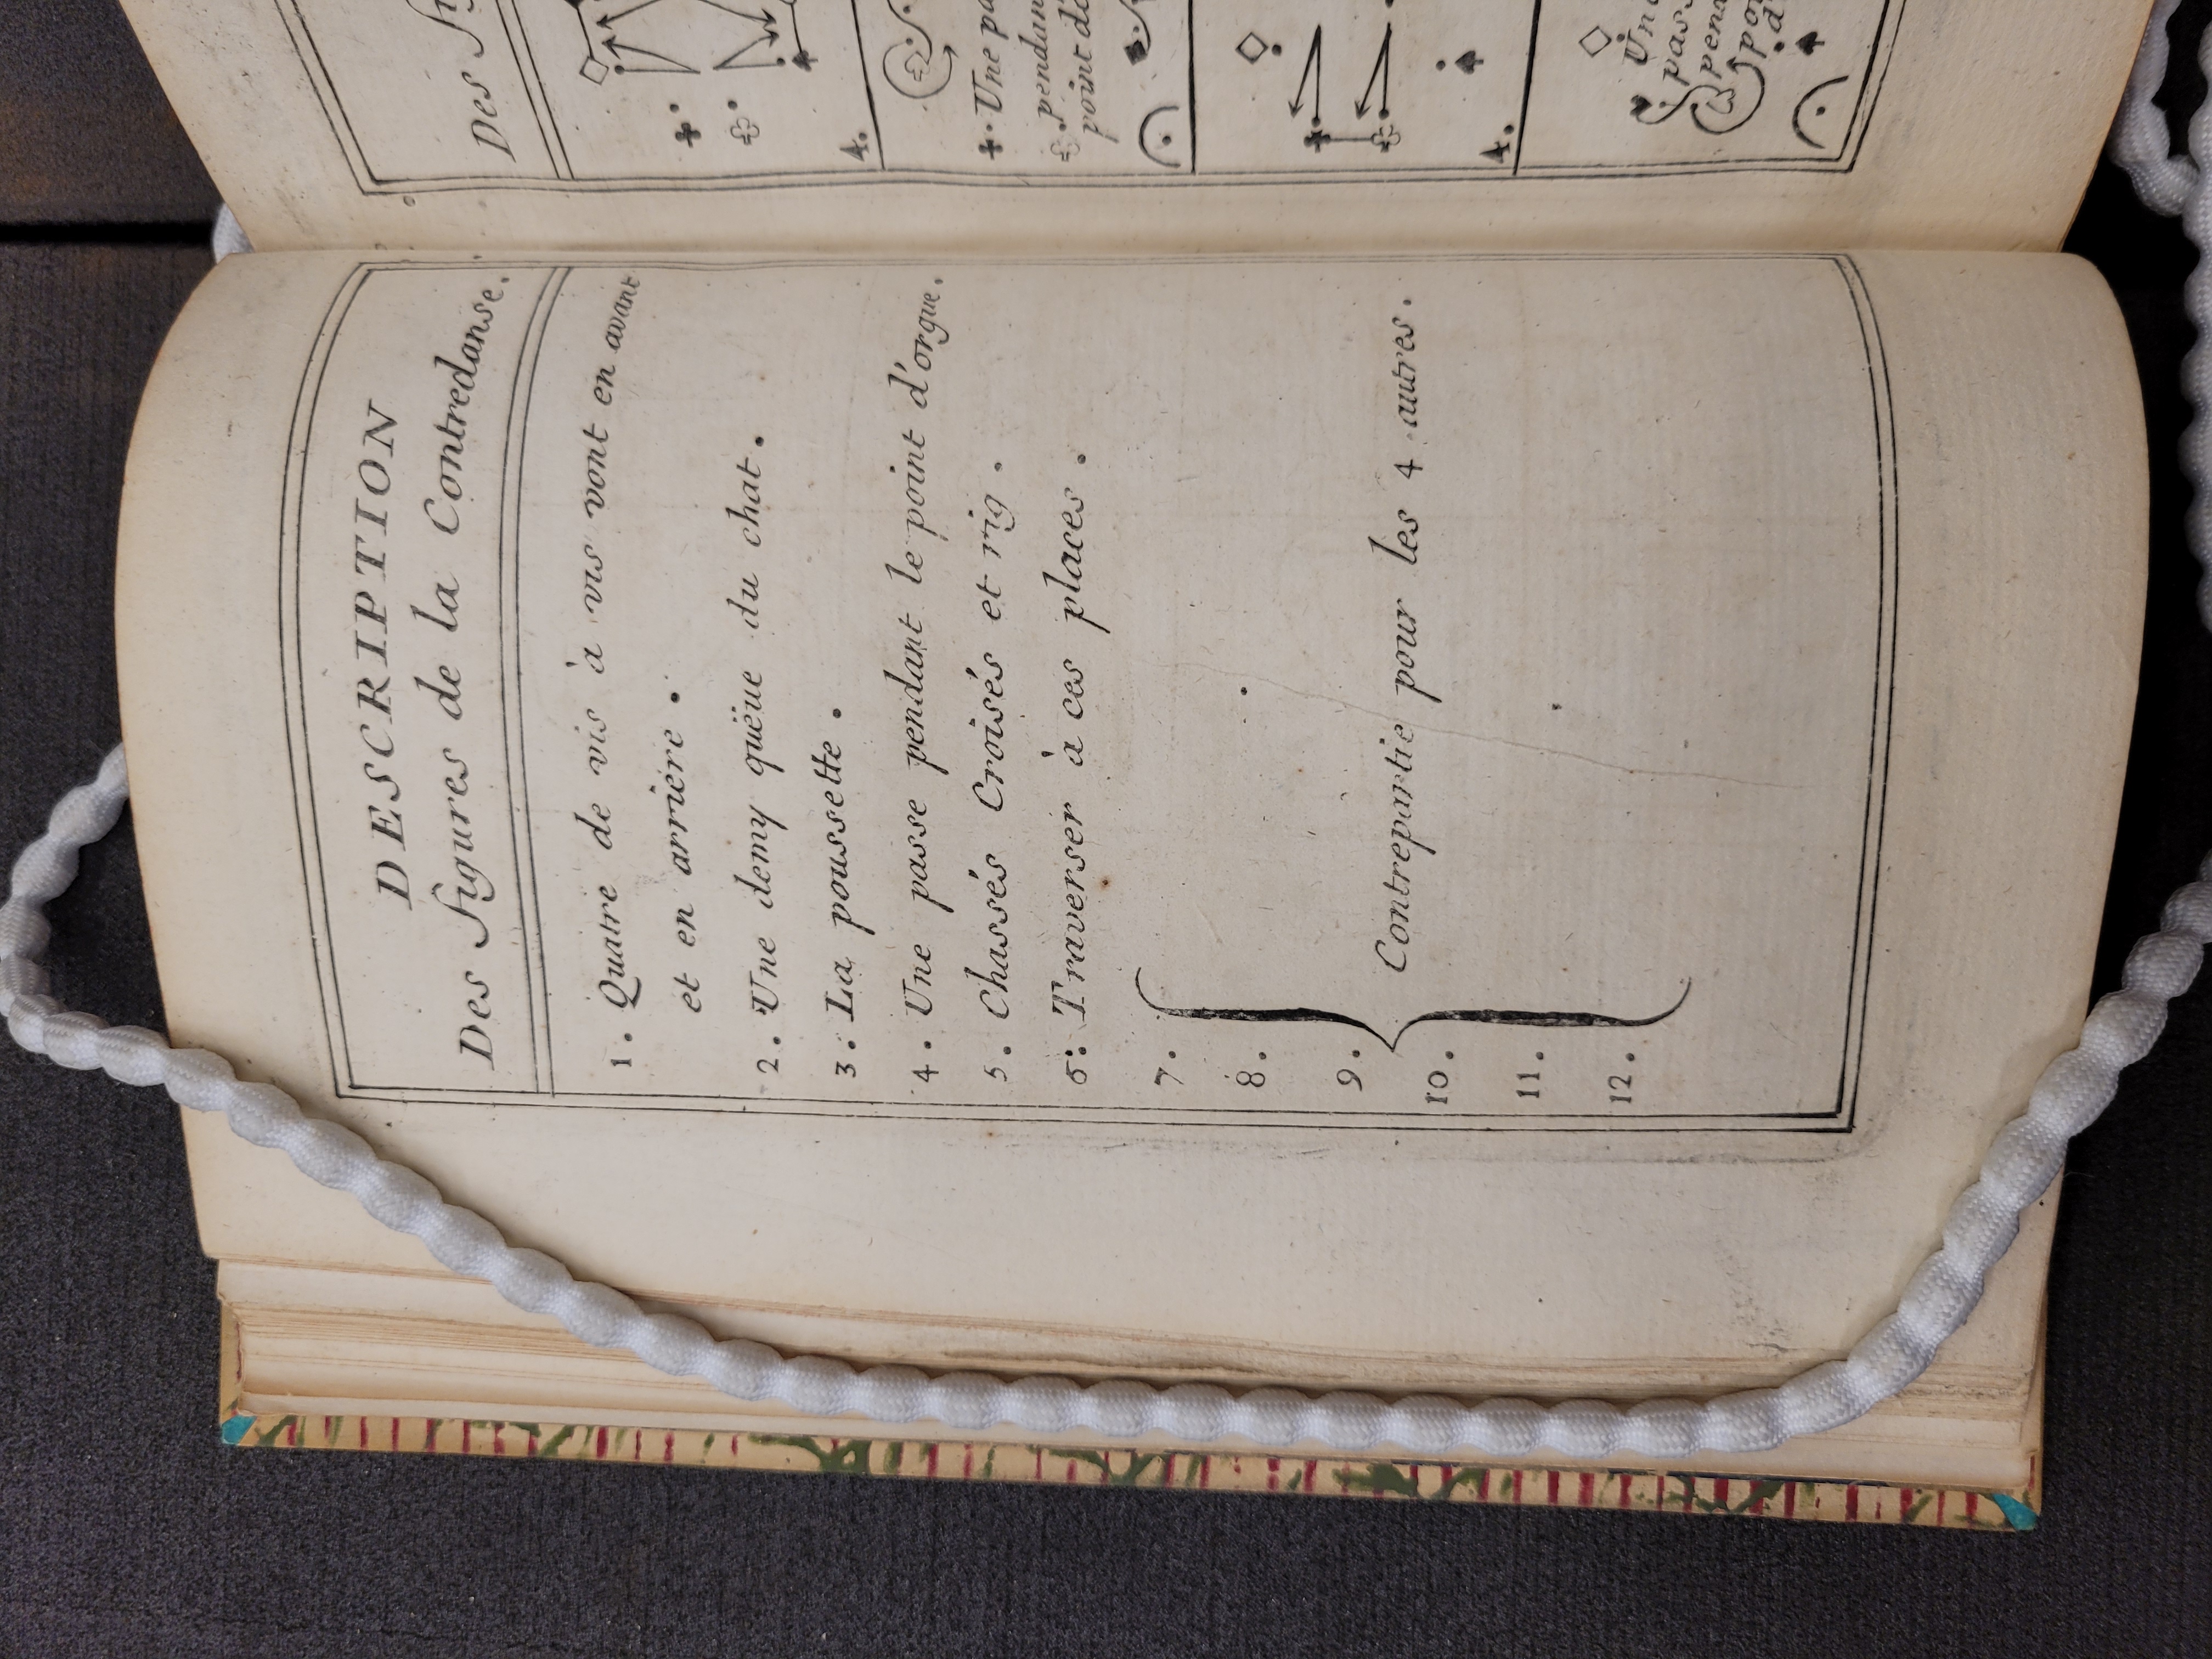 DESCRIPTION
Des figures de la Contredanse.
1. Quatre de vis à vis vont en avant
et en arriére.
2. Une demy quëue du chat.
3. La poussette.
4. Une passe pendant le point d'orgue.
5. Chassés Croisés et rig.
6. Traverser à ces places.
7.
8.
9. Contrepartie pour les 4 autres.
10.
11.
12.
Des
4.
Une
pendant
point
4.
Une